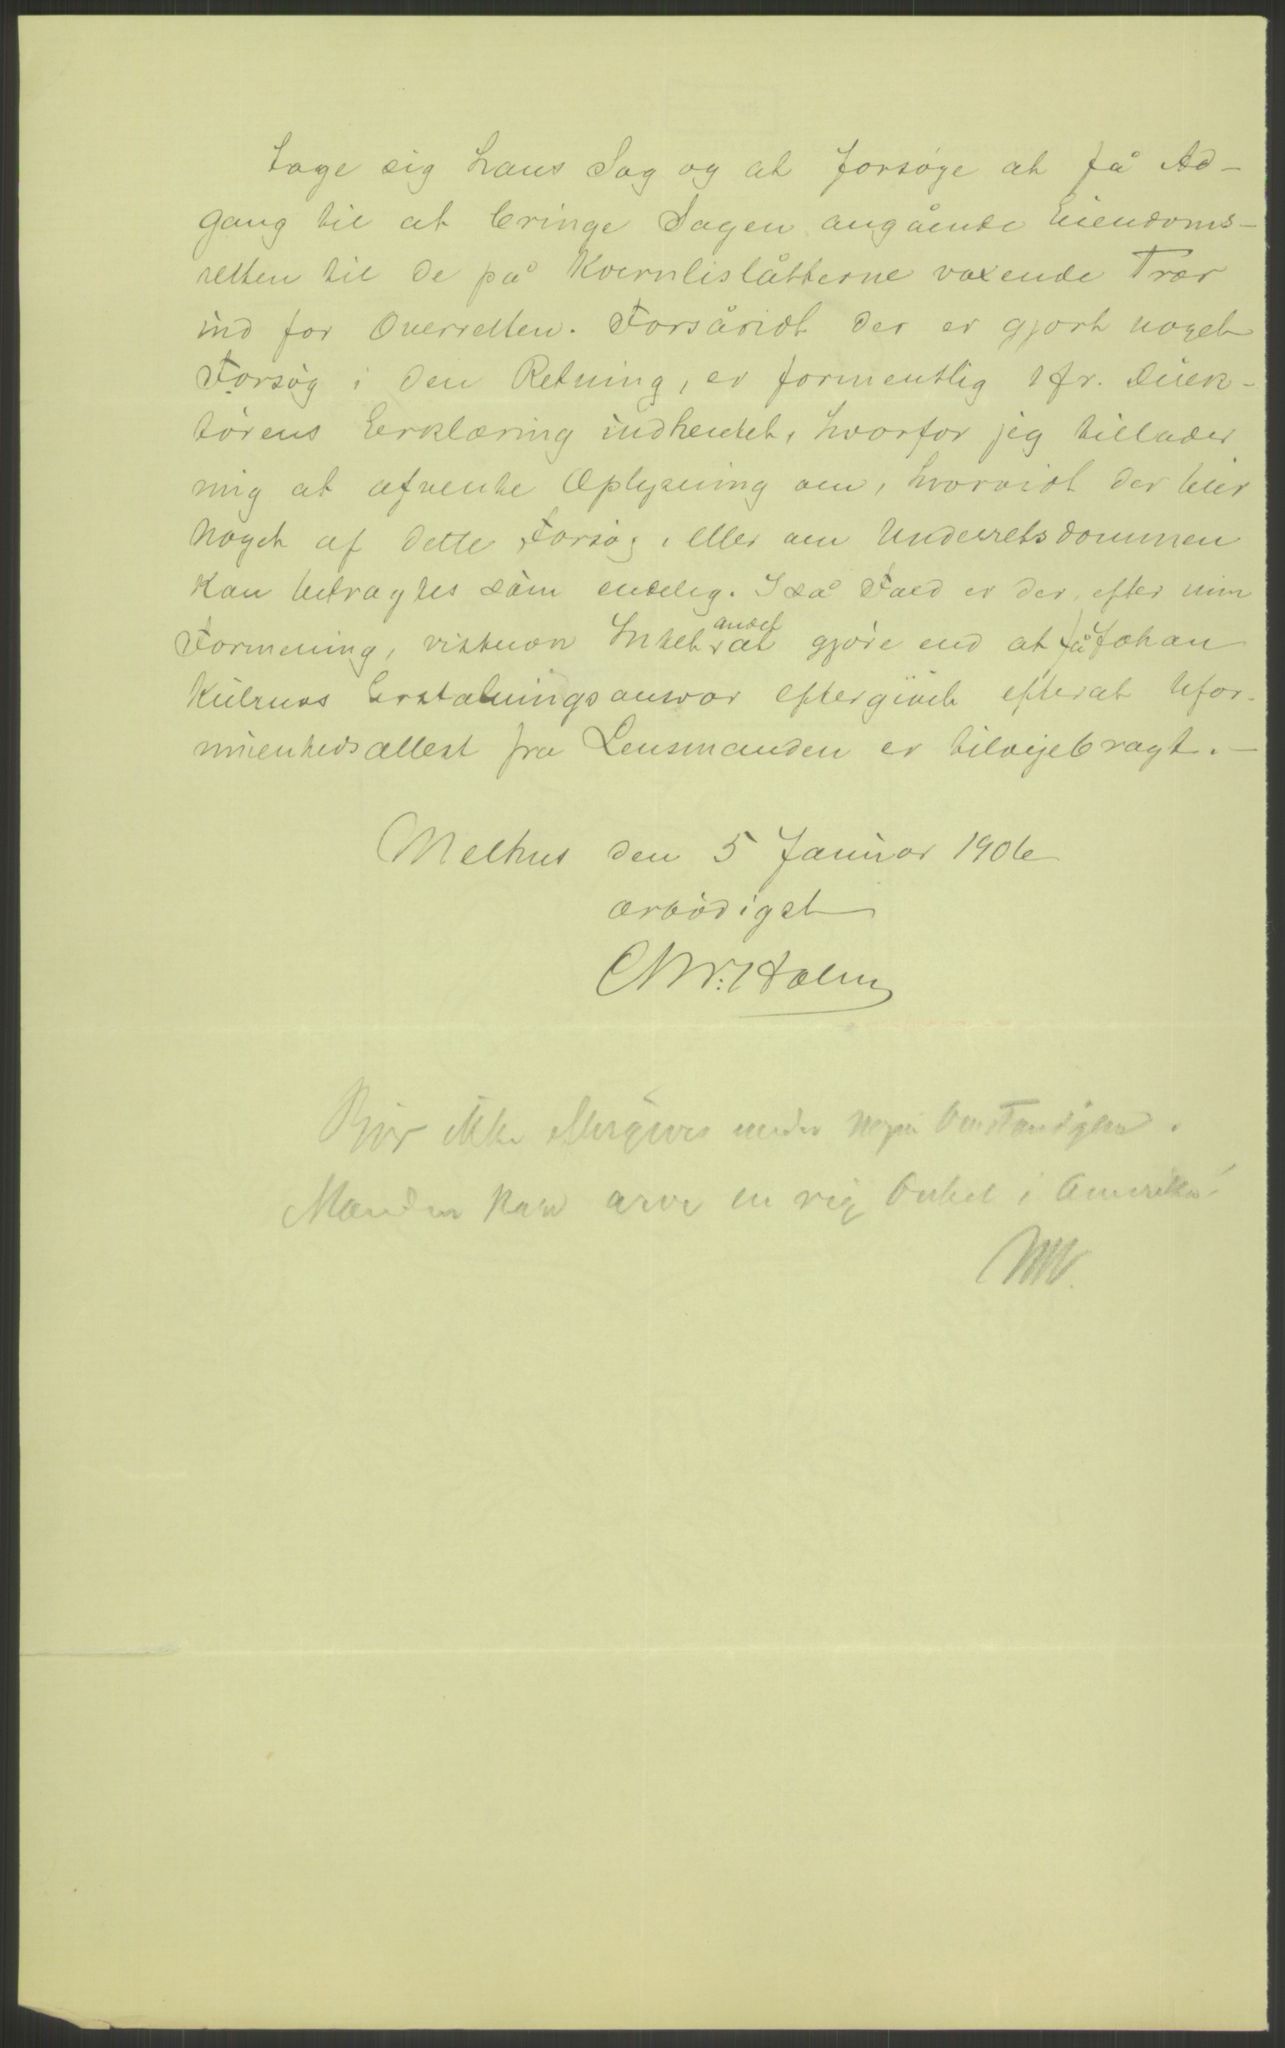 tage sig hans Sag og at forsøge at få Ad-
gang til at bringe Sagen angående Eiendoms-
retten til de på Kvernlislåtterne voxende Trær
ind for Overretten. Forsåvidt der er gjort noget
Forsøg i den Retning, er formentlig Hr. Direk-
tørens Erklæring indhentet, hvorfor jeg tillader
mig at afvente Oplysning om, hvorvidt der blir
noget af dette Forsøg, eller om Underretsdommen
kan betragtes som endelig. I så Fald er der, efter min
Formening, vistnok Intet andet at gjøre end at få Johan
Erstatningsansvar eftergivet efterat Ufor-
muenhedsattest fra Lensmanden er tilvejebragt. —
Melhus den 5 Januar 1906
ærbødigst
Chr. Holm
Bør ikke eftergives under nogen Omstændighed.
Manden kan arve en rig Onkel i Amerika!